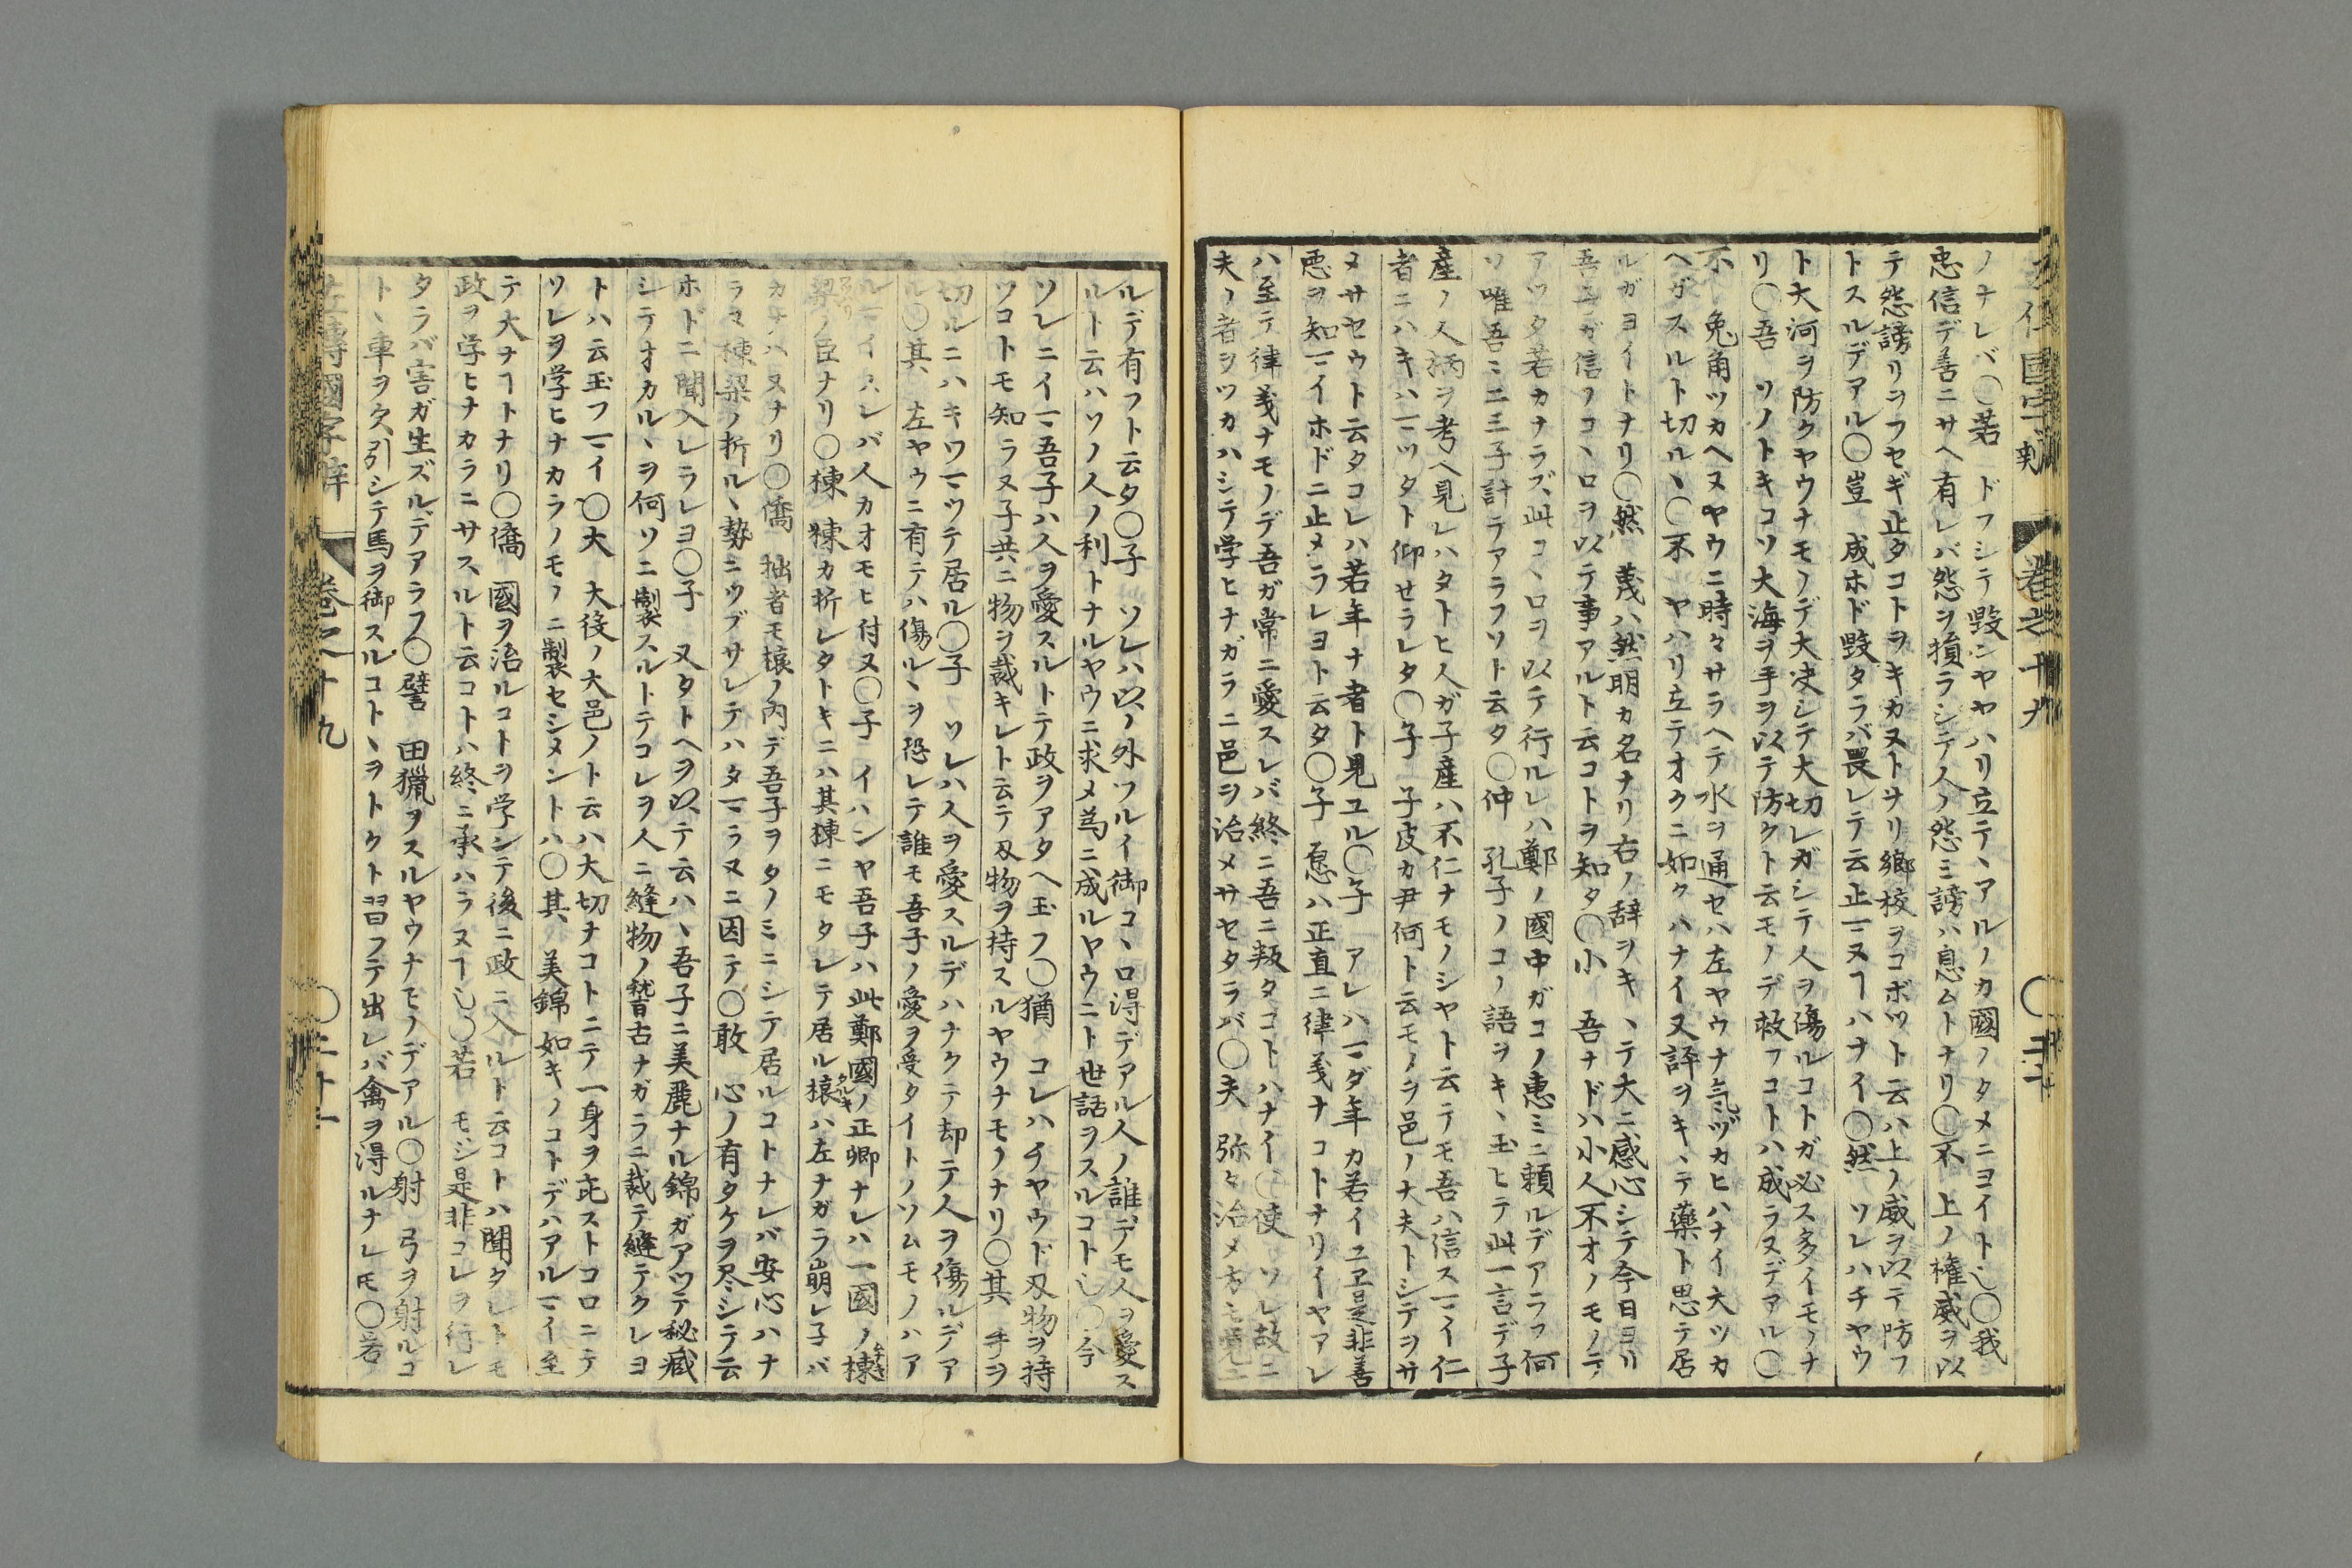 ノナレバ〇若 ドフシテ毀ンヤヤハリ立テヽアルノカ國ノタメニヨイト也〇我
忠信デ善ニサヘ有レバ怨ヲ損ラシテ人ノ怨ミ謗ハ息ムトナリ〇不 上ノ權威ヲ以
テ怨謗リヲフセギ止タコトヲキカヌトナリ鄉校ヲコボツト云ハ上ノ威ヲ以テ防フ
トスルデアル〇豈 成ホド毀タラバ畏レテ云止マヌヿハナイ〇然 ソレハチヤウ
ト大河ヲ防クヤウナモノデ大决シテ大切レガシテ人ヲ傷ルコトガ必ス多イモノナ
リ〇吾 ソノトキコソ大海ヲ手ヲ以テ防クト云モノデ救フコトハ成ラヌデアル〇
不 兔角ツカヘヌヤウニ時々サラヘテ水ヲ通セハ左ヤウナ気ヅカヒハナイ大ツカ
ヘガスルト切ルヽ〇不 ヤハリ立テオクニ如クハナイ又評ヲキヽテ藥ト思テ居
ルガヨイトナリ〇然 蔑ハ然明カ名ナリ右ノ辞ヲキヽテ大ニ感心シテ今日ヨリ
吾子ガ信フコヽロヲ以テ事アルト云コトヲ知タ〇小 吾ナドハ小人不オノモノデ
アツタ若カナラズ此コヽロヲ以テ行ルレハ鄭ノ國中ガコノ惠ミニ賴ルデアラフ何
ソ唯吾ミ二三子計テアラフソト云タ〇仲 孔子ノコノ語ヲキヽ玉ヒテ此一言デ子
產ノ人柄ヲ考ヘ見レハタトヒ人ガ子産ハ不仁ナモノシヤト云テモ吾ハ信スマイ仁
者ニハキハマツタト仰せラレタ〇子 子皮カ尹何ト云モノヲ邑ノ大夫トシテヲサ
メサセウト云タコレハ若年ナ者ト見ユル〇子 アレハマダ年カ若イユヱ是非善
悪ヲ知マイホドニ止メラレヨト云タ〇子 愿ハ正直ニ律義ナコトナリイヤアレ
ハ至テ律義ナモノデ吾ガ常ニ愛スレバ終ニ吾ニ叛タコトハナイ〇使 ソレ故ニ
夫ノ者ヲツカハシテ学ヒナガラニ邑ヲ治メサセタラバ〇夫 弥々治メ方モ覚ニ
ルデ有フト云タ〇子 ソレハ以ノ外ワルイ御コヽロ得デアル人ノ誰デモ人ヲ愛ス
ルト云ハソノ人ノ利トナルヤウニ求メ為ニ成ルヤウニト世話ヲスルコト也〇今
ソレニイマ吾子ハ人ヲ愛スルトテ政ヲアタヘ玉フ〇猶 コレハチヤウド刄物ヲ持
ツコトモ知ラヌ子共ニ物ヲ裁キレト云テ刄物ヲ持スルヤウナモノナリ〇其 手ヲ
切ルニハキワマツテ居ル〇子 ソレハ人ヲ愛スルデハナクテ却テ人ヲ傷ルデア
ル〇其 左ヤウニ有テハ傷ルヽヲ恐レテ誰モ吾子ノ愛ヲ受タイトノソムモノハア
ルマイスレバ人カオモヒ付ヌ〇子 イハンヤ吾子ハ此鄭國ノ正卿ナレハ一國ノ棟
梁ノ臣ナリ〇棟 棟カ折レタトキニハ其棟ニモタレテ居ル榱ハ左ナガラ崩レ子バ
カナハヌナリ〇僑 拙者モ榱ノ内デ吾子ヲタノミニシテ居ルコトナレバ安心ハナ
ラヌ棟梁ノ折ルヽ勢ニツブサレテハタマラヌニ因テ〇敢 心ノ有タケヲ尽シテ云
ホドニ聞入レラレヨ〇子 又タトヘヲ以テ云ハヽ吾子ニ美麗ナル錦ガアツテ秘藏
シテオカルヽヲ何ソニ製スルトテコレヲ人ニ縫物ノ稽古ナガラニ裁テ縫テクレヨ
トハ云玉フマイ〇大 大後ノ大邑ノト云ハ大切ナコトニテ一身ヲ庇ストコロニテ
ソレヲ学ヒナカラノモノニ製セシメントハ〇其 美錦如キノコトデハアルマイ至
テ大ナヿトナリ〇僑 國ヲ治ルコトヲ学ンテ後ニ政ニ入ルト云コトハ聞タレトモ
政ヲ学ヒナカラニサスルト云コトハ終ニ承ハラヌヿ也〇若 モシ是非コレヲ行レ
タラバ害ガ生ズルデアラフ〇譬 田獵ヲスルヤウナモノデアル〇射 弓ヲ射ルコ
トヽ車ヲ久引シテ馬ヲ御スルコトヽヲトクト習フテ出レバ禽ヲ淂ルナレ𪜈〇若
左傳國字辯 卷之十九 〇二十一